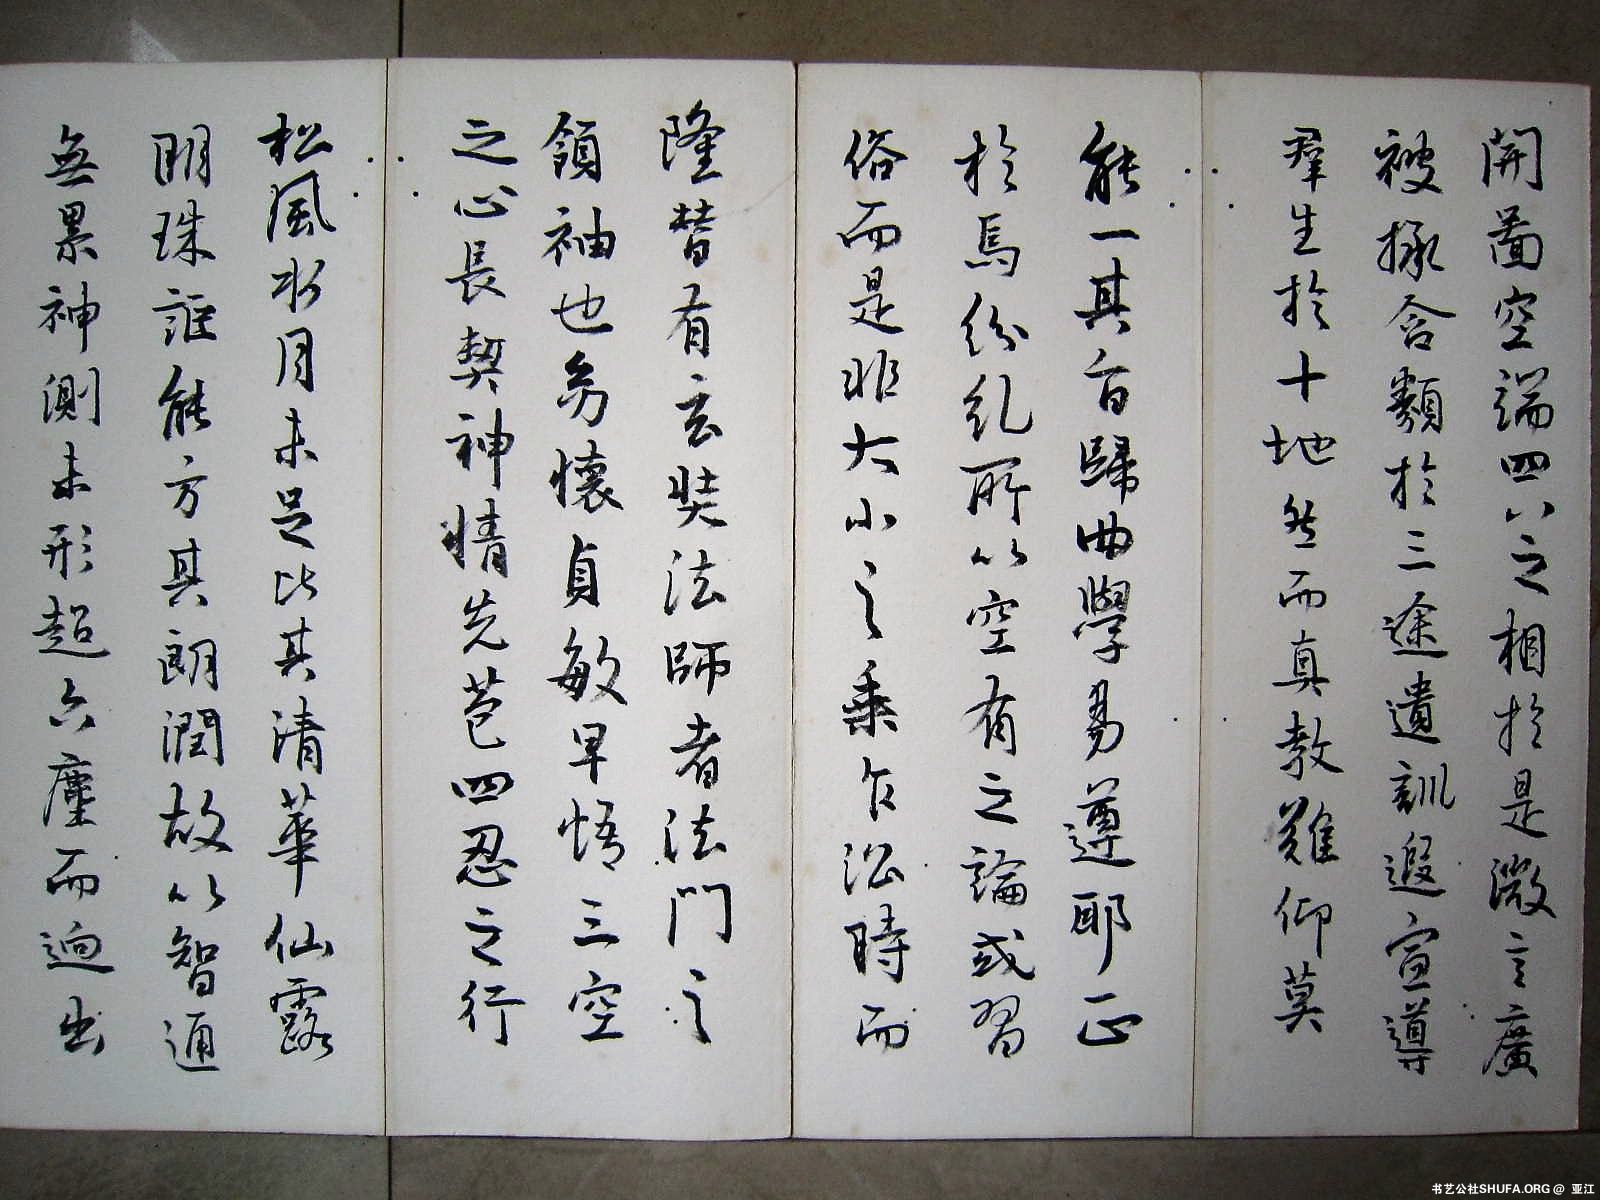 開圖空端四八之相於是微言廣
被拯含類於三途遺訓遐宣導
羣生於十地然而真教難仰莫
能一其旨歸曲學易遵耶正
於焉紛糺所以空有之論或習
俗而是非大小之乘乍沿時而
隆替有玄奘法師者法門之
領袖也幼懷貞敏早悟三空
之心長契神情先苞四忍之行
松風水月未足比其清華仙露
明珠詎能方其朗潤故以智通
無累神測未形超六塵而迥出
书艺公社SHUFA.ORG @ 亚江